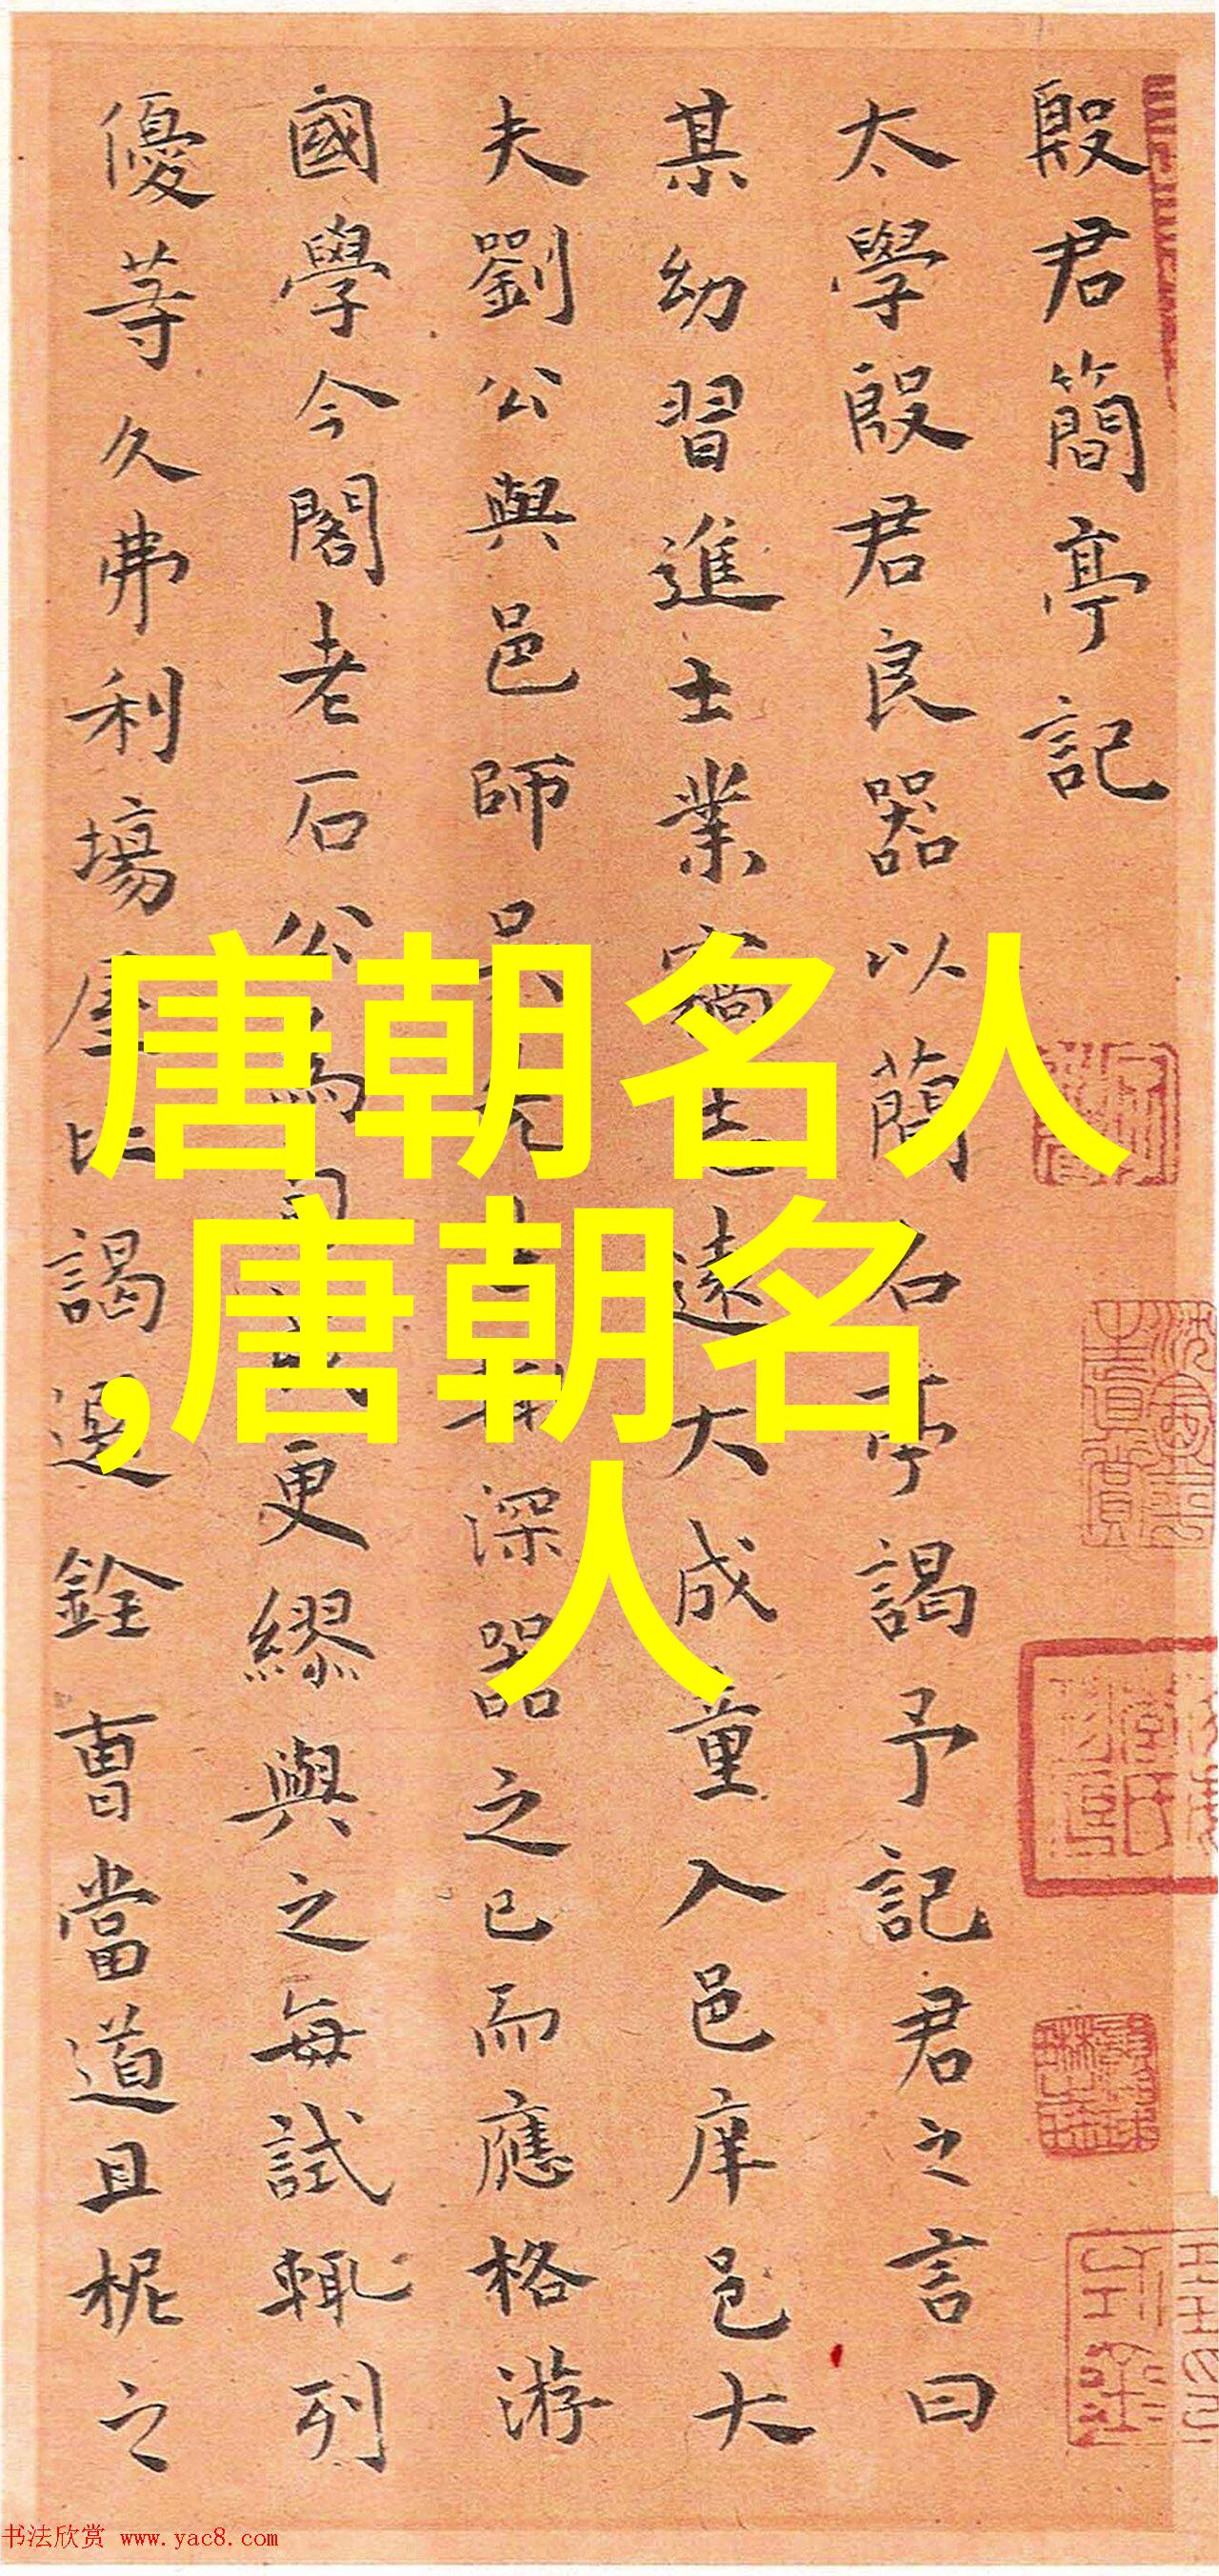 殷君簡亭記
太學殷君良器以簡名亭謁予記君之言曰
某幼習進士業窮志遠大成童入邑庠邑大
夫劉公與邑師吴先生深器之已而應格游
國學今閣老石公為司成更繆與之每試輒列
優等久弗利場屋比謁選銓曹當道且柅之
唐朝名人
,唐朝名
人
书法欣赏 www.yac8.com